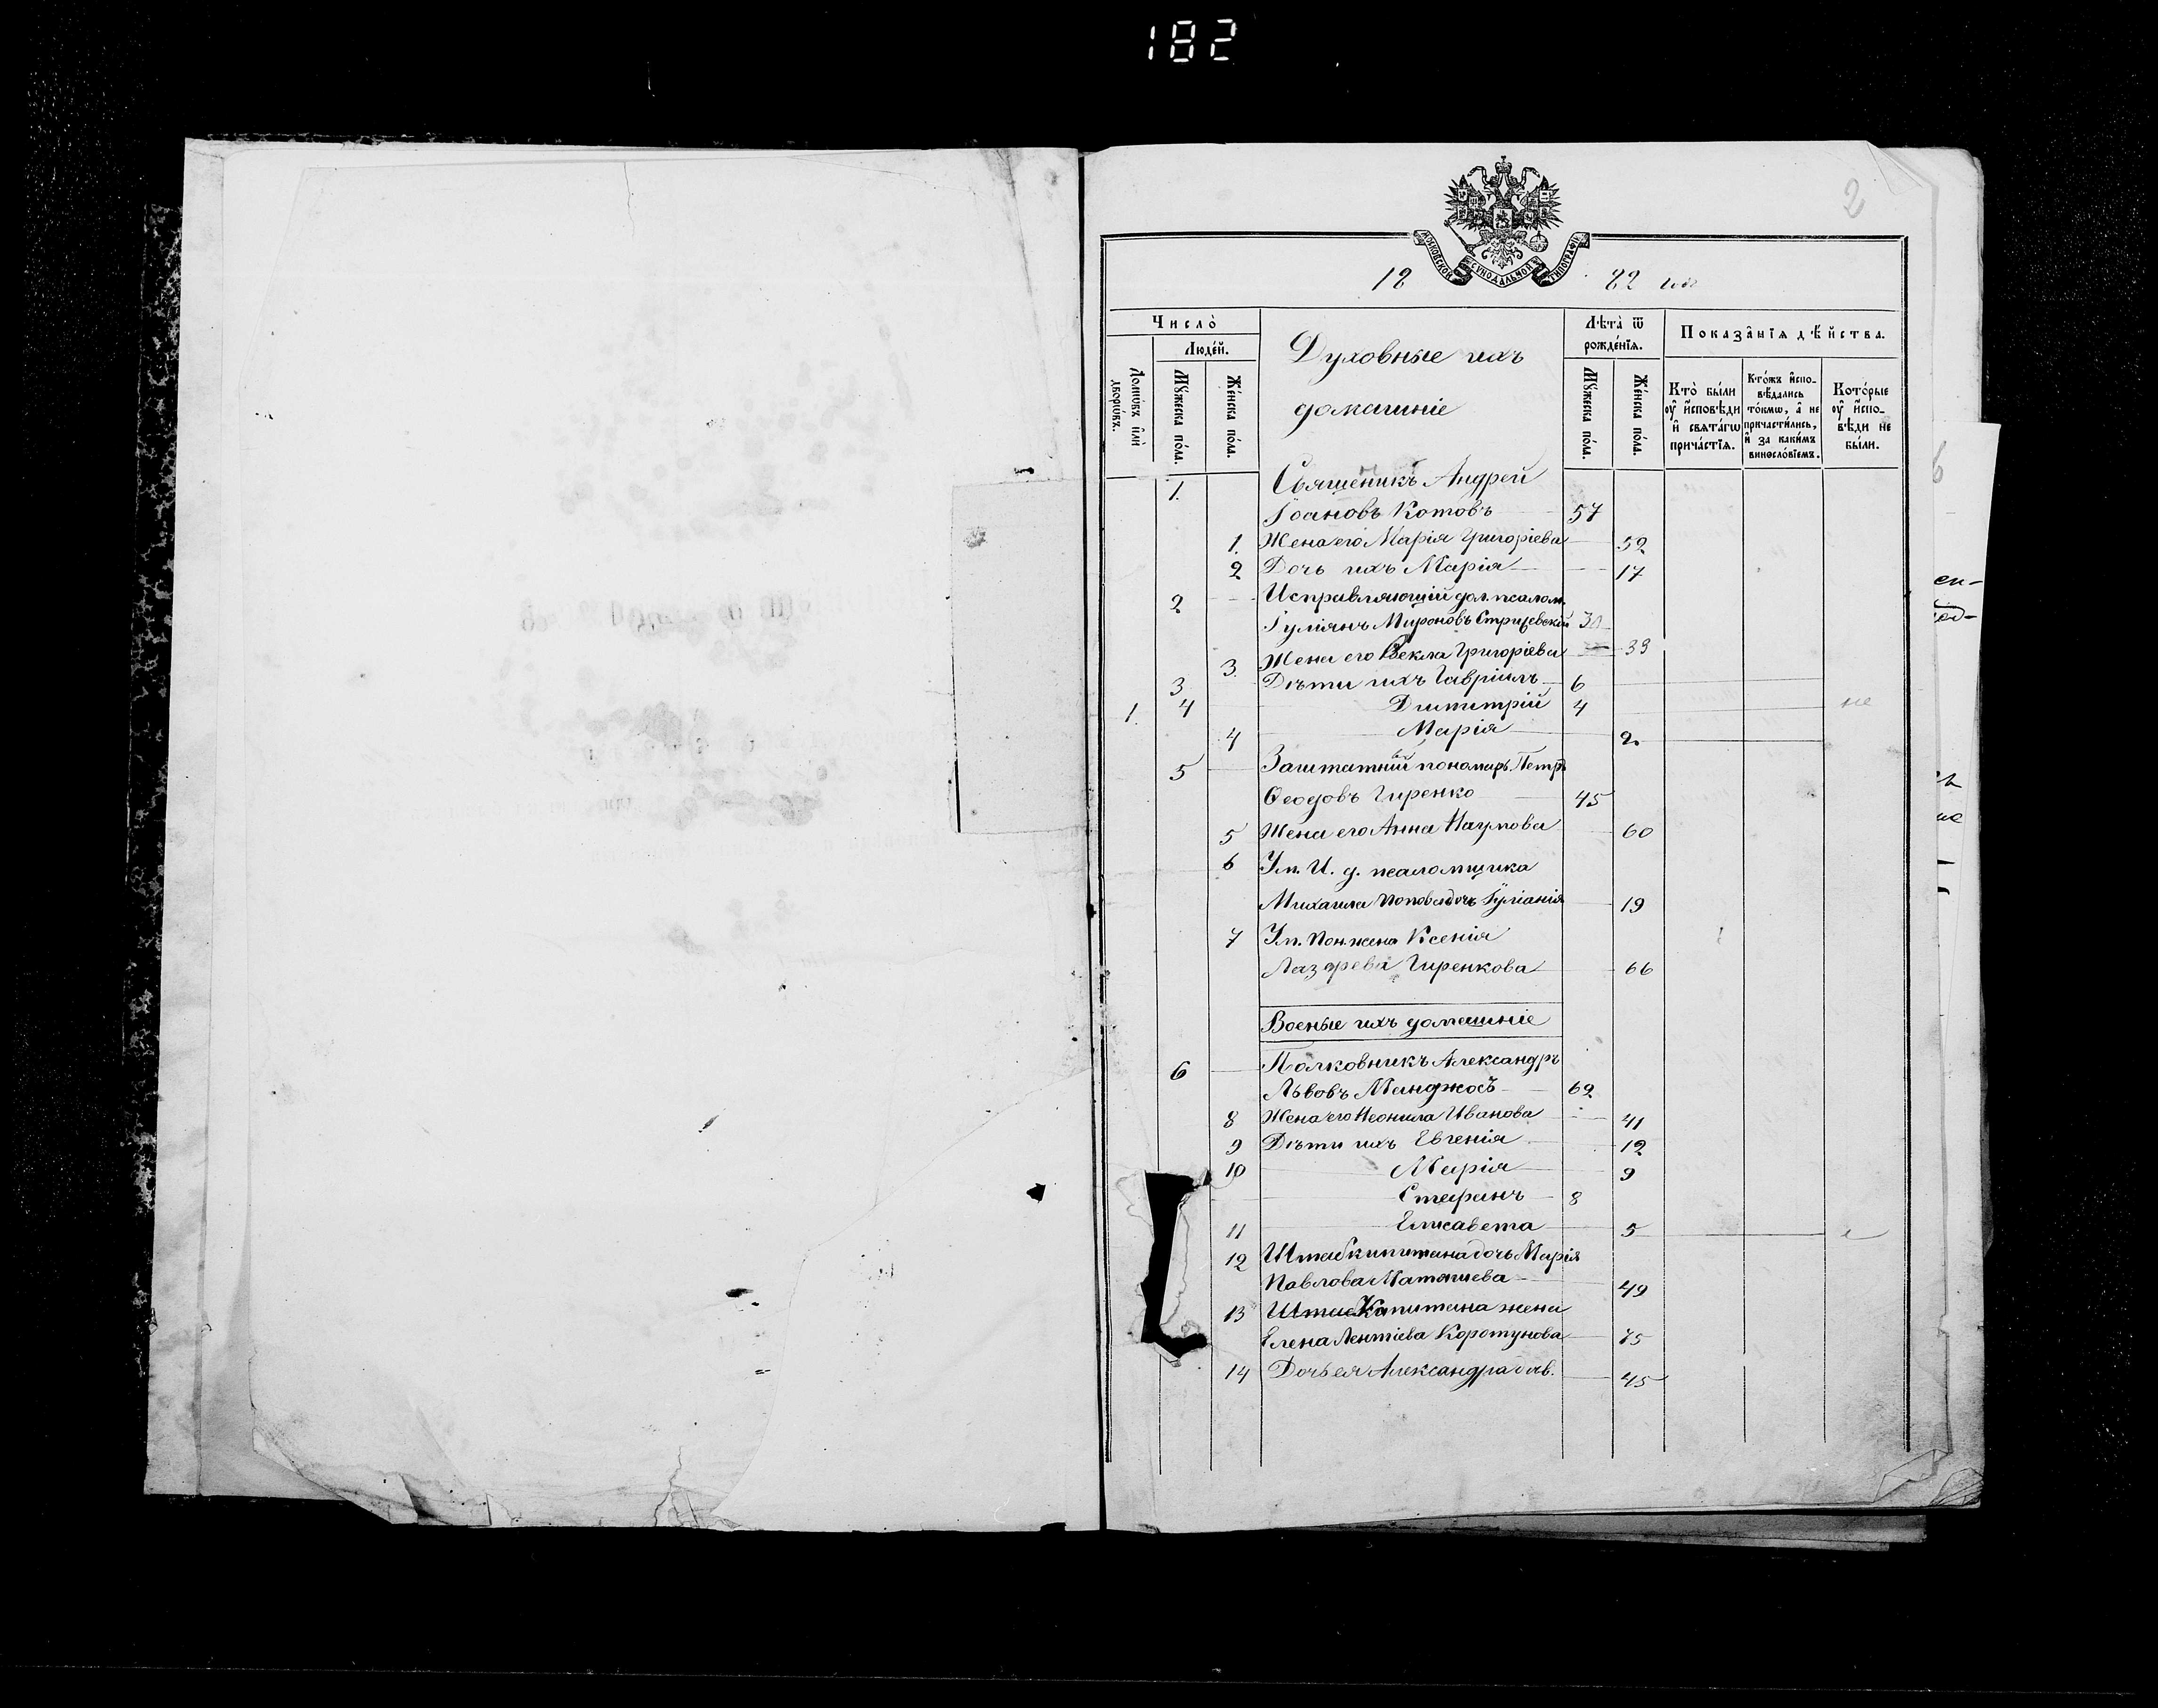 182
2
МОСКОВСКОЙ СУНОДАЛЬНОЙ ТИПОГРАФІИ
18 82 года
Число̀
Людéй.
Домѡвъ и҆лѝ дворѡвъ.
Мꙋ́жеска по́ла.
Же́нска по́ла.
Духовные ихъ
домашніе
Лѣта̀ ѿ рожде́нїѧ.
Мꙋ́жеска по́ла.
Же́нска по́ла.
Показа̑нїѧ дѣ́йства.
Кто̀ бы́ли оу҆ и҆́сповѣди и҆ свѧта́гѡ прича́стїѧ.
Кто́жъ и҆сповѣ́дались то́кмѡ, а҆ не причасти́лись, и҆ за каки́мъ виносло́вїемъ.
Кото́рые оу҆ и҆́сповѣди не бы́ли.
1. Священикъ Андрей
Іоановъ Котовъ 57
1. Жена его Марія Григоріева 52
2 Дочь ихъ Марія 17
2 Исправляющій дол. псалом.
Іуліянъ Мироновъ Стрицевскій 30
3. Жена его Ѳекла Григоріева 33
3 Дѣти ихъ Гавріилъ 6
1. 4 Димитрій 4 не
4 Марія 2
5 Заштатный пономарь Петръ
Ѳеодовъ Гиренко 45
5 Жена его Анна Наумова 60
6 Ум. И. д. псаломщика
Михаила Попова дочь Іуліанія 19
7 Ум. Пон. жена Ксенія
Лазарева Гиренкова 66
Военые ихъ домашніе
6 Полковникъ Александръ
Львовъ Манджосъ 62
8 Жена его Неонила Иванова 41
9 Дѣти ихъ Евгенія 12
10 Марія 9
Стефанъ 8
11 Елисавета 5
12 Штабкапитана дочь Марія
Павлова 49
13 Капитана жена
Елена Лентіева Коротунова 75
14 Дочь ея Александра 45